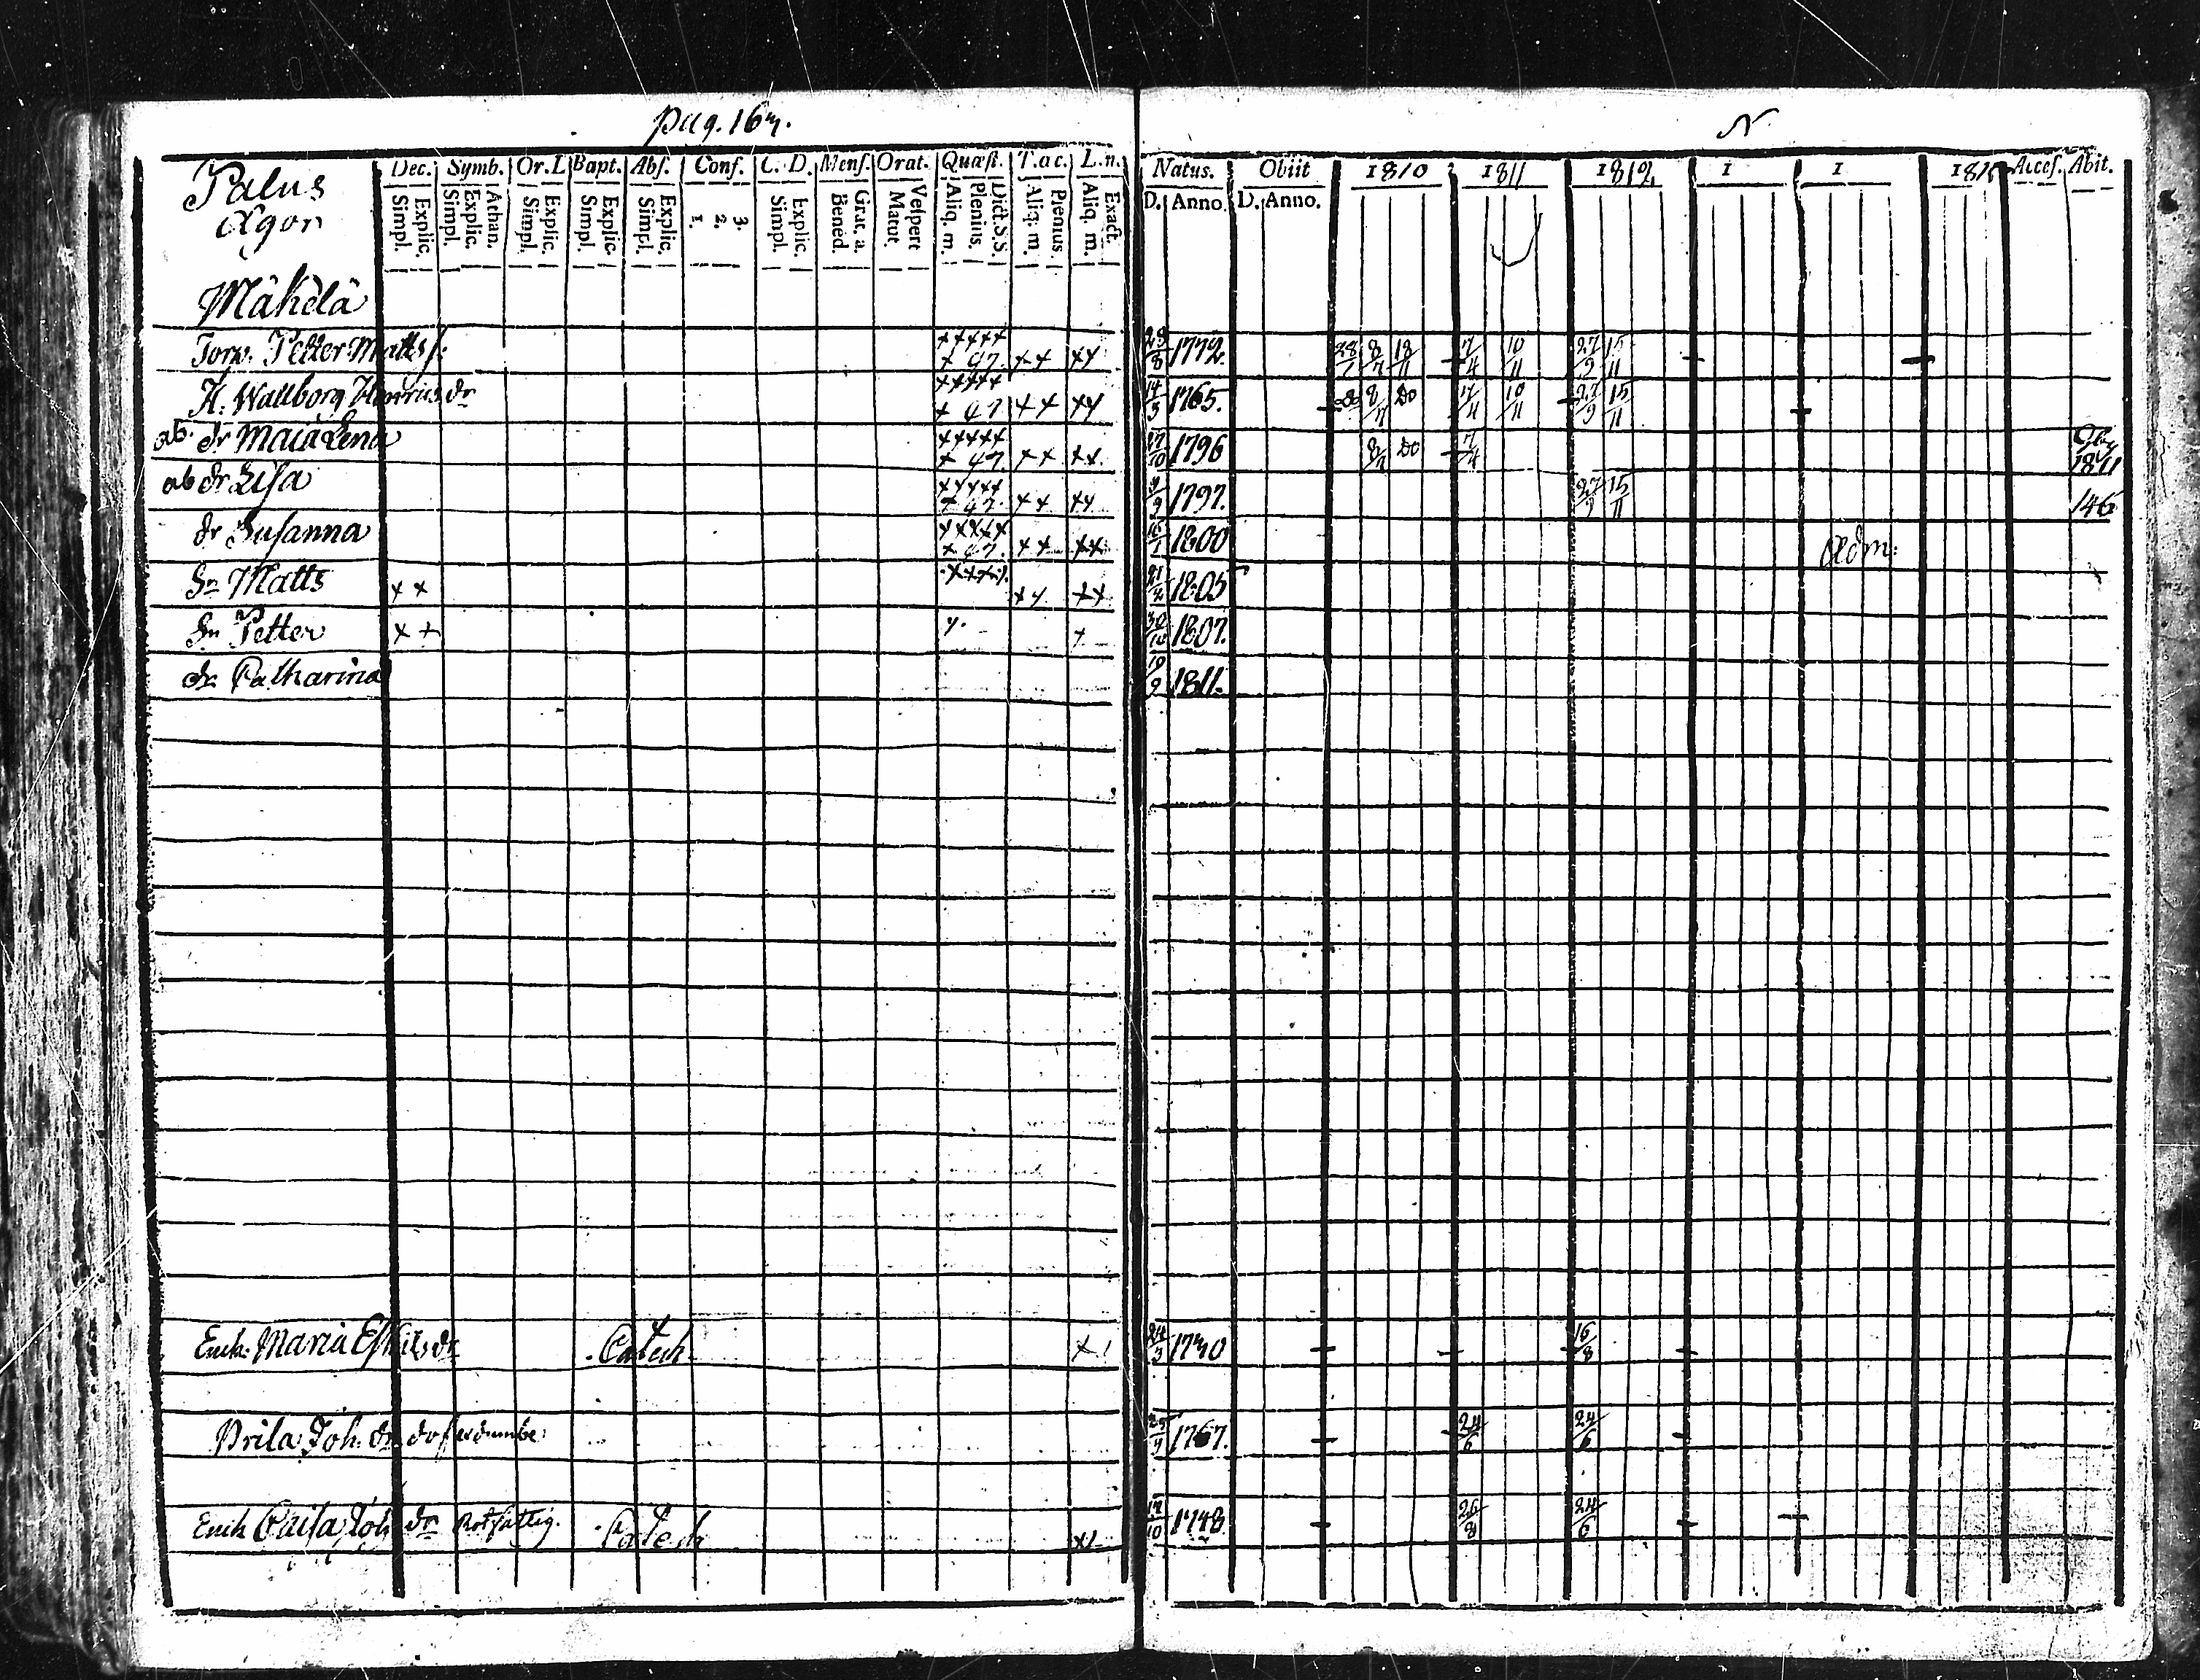 pag. 167.
N
Palus
Ägor
Dec. Symb. Or. L Bapt. Abſ. Conf. C. D. Menſ. Orat. Quæſt. T. ac. L. n.
Simpl. Explic. Simpl. Explic. Athan. Simpl. Explic. Simpl. Explic. Simpl. Explic. 1. 2. 3. Simpl. Explic. Bened. Grat. a. Matut. Veſpert Aliq. m. Plenius. Dict. S. S. Aliq. m. Plenius. Aliq. m. Exact.
Natus. Obiit 1810 1811 1812 1 1 181 Acceſ. Abit.
D. Anno. D. Anno.
Mäkelä
Torp. Petter Matts ſ: +++++ + 47. ++ ++ 1772. 28/1 8/7 18/11 7/4 10/11 27/9 15/11
H. Wallborg Henricsdr +++++ + 47 ++ ++ 14/5 1765. 8/7 Do 7/4 10/11 27/9 15/11
ab. dr Maia Lena +++++ + 47 ++ ++ 17/10 1796 8/7 Do 7/4 1811
ab dr Lisa +++++ + 47. ++ ++ 1797. 27/9 15/11 146
dr Susanna +++++ + 47. ++ ++ 16/1 1800 Adm:
Sn Matts ++ ++++ ++ ++ 21/2 1805
Sn Petter ++ + + 30/10 1807.
dr Catharina 19/9 1811.
Enk. Maria Eſkilsdr Catech. + 1740 16/8
Brita Joh. dr döfſtumbe: 1767. 24/6 24/6
Enk Caisa Joh dr Rotfattig. Catech ++ 17/10 1748 26/8 24/6